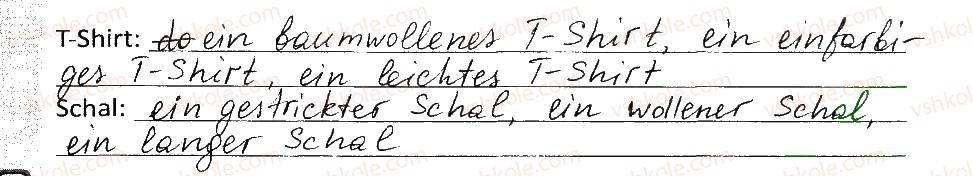 T-Shirt: do ein baumwollenes T-Shirt, ein einfarbi-
ges T-Shirt, ein leichtes T-Shirt
Schal: ein gestrickter Schal, ein wollener Schal,
ein langer Schal